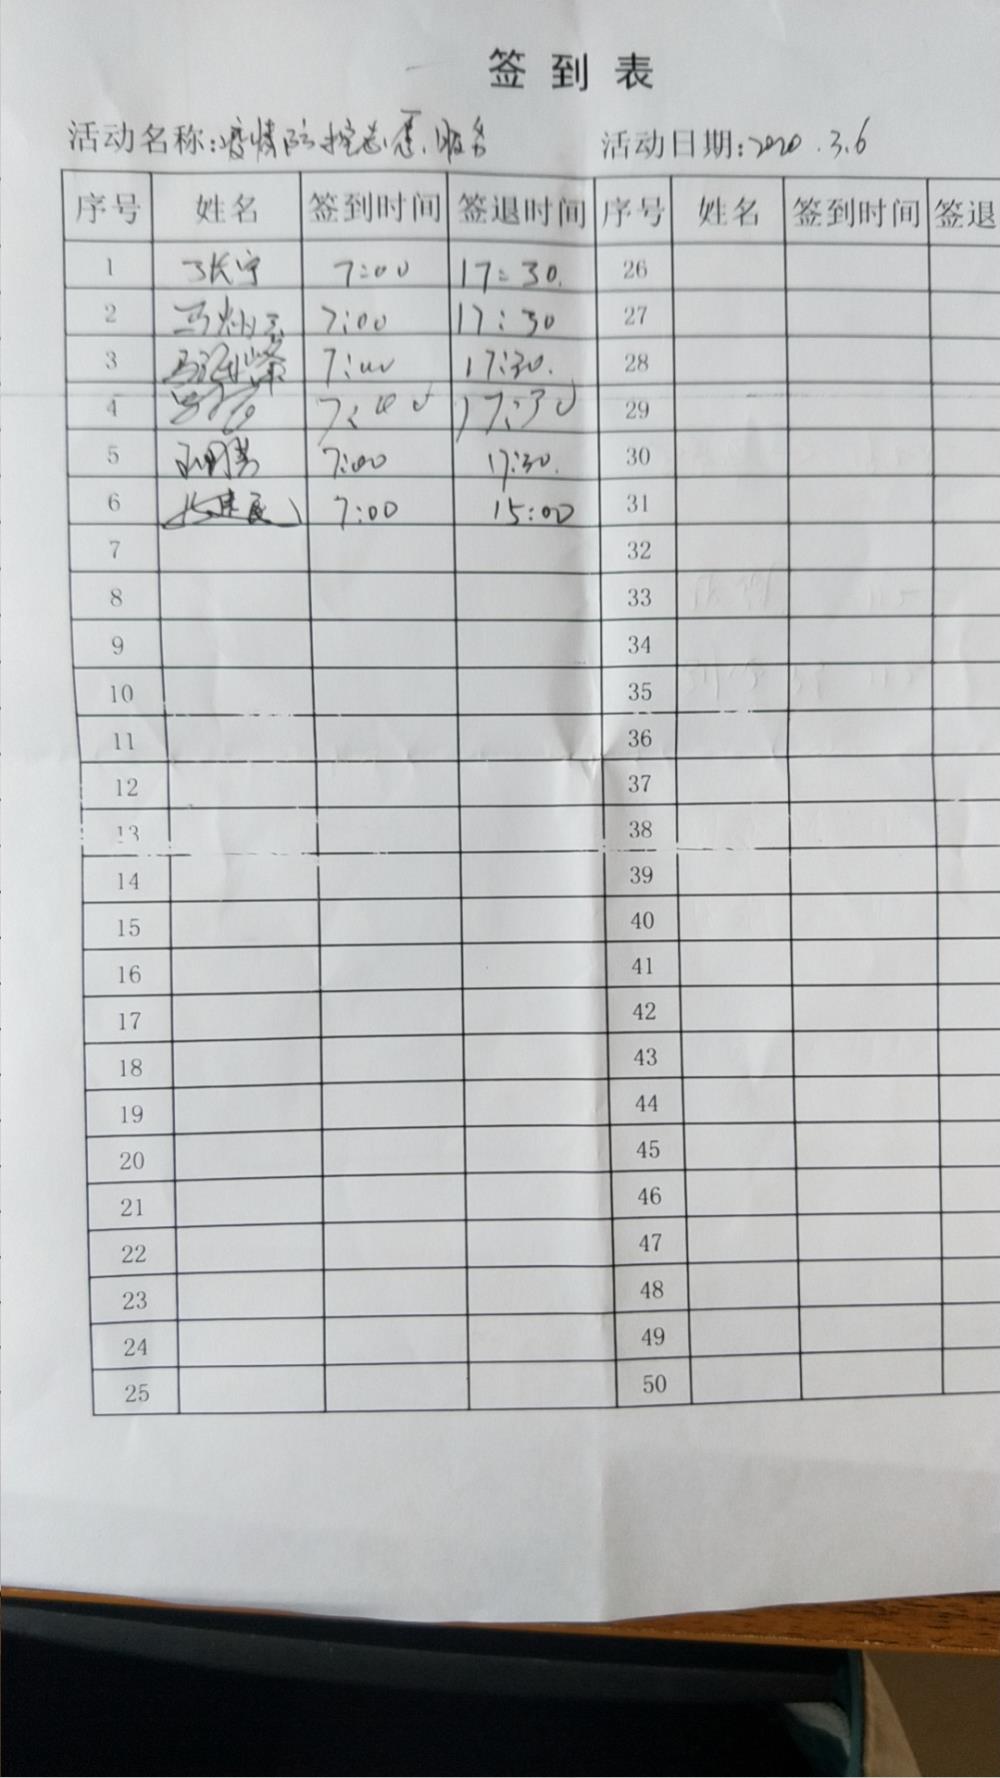 签到表
活动名称:疫情防控志愿服务 活动日期:2020.3.6
序号 姓名 签到时间 签退时间 序号 姓名 签到时间 签退
1 张宁 7:00 17:30. 26
2 7:00 17:30 27
3 7:00 17:30. 28
4 7:00 17:30 29
5 7:00 17:30. 30
6 7:00 15:00 31
7 32
8 33
9 34
10 35
11 36
12 37
13 38
14 39
15 40
16 41
17 42
18 43
19 44
20 45
21 46
22 47
23 48
24 49
25 50